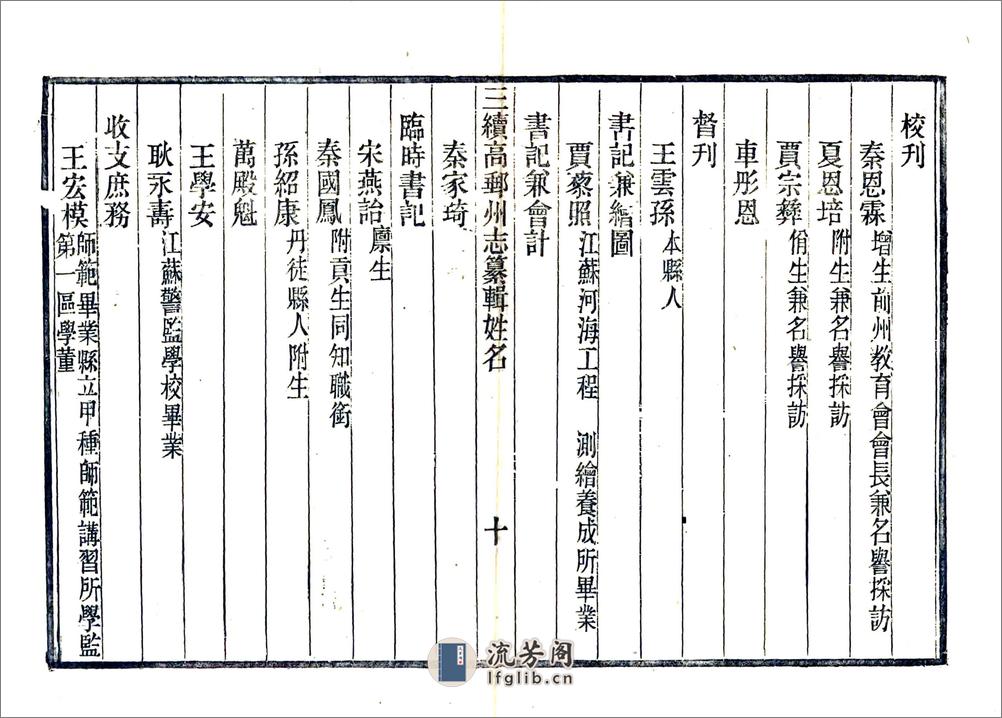 校刋
秦恩霖 增生前州教育會會長兼名譽採訪
夏恩培 附生兼名譽採訪
賈宗彝 佾生兼名譽採訪
車彤恩
督刋
王雲孫 本縣人
書記兼繪圖
賈藜照 江蘇河海工程 測繪養成所畢業
書記兼會計
三續高郵州志纂輯姓名 十
秦家琦
臨時書記
宋燕詒 廩生
秦國鳳 附貢生同知職銜
孫紹康 丹徒縣人附生
萬殿魁
王學安
耿永壽 江蘇警監學校畢業
收支庶務
王宏模 師範畢業縣立甲種師範講習所學監
第一區學董
流芳阁
lfglib.cn